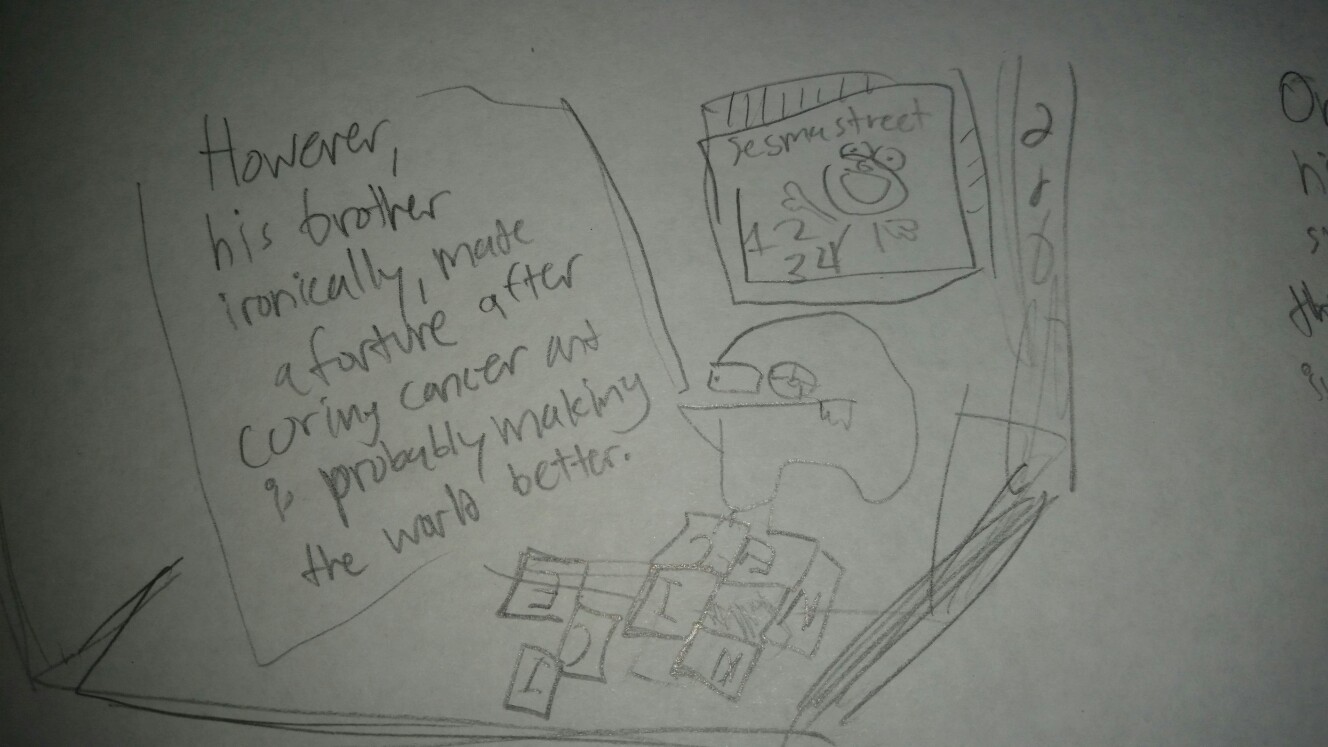 However,
his brother
ironically, made
a fortune after
curing cancer and
is probably making
the world better.
Sesmustreet
1 2
3 4